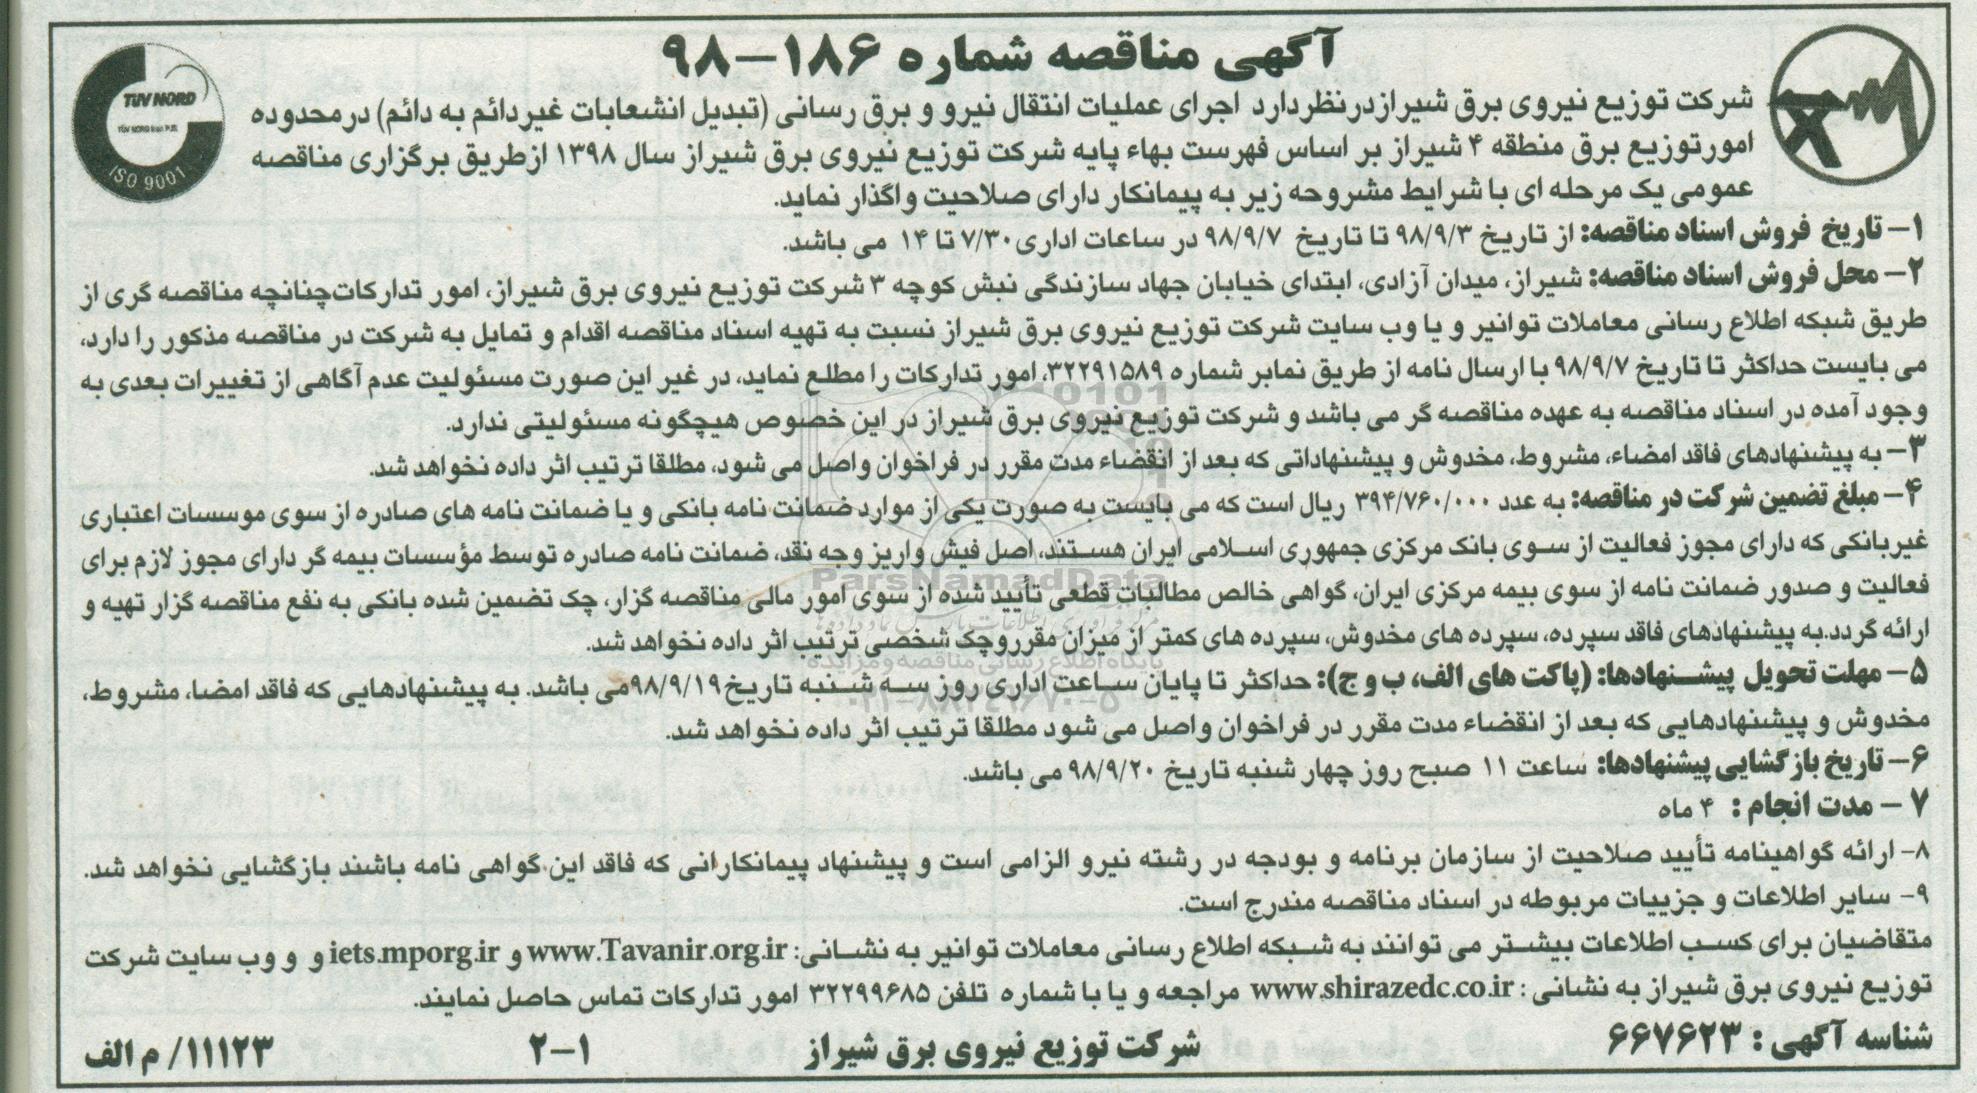 آگهی مناقصه شماره ۱۸۶-۹۸
TÜV NORD
TÜV NORD Iran P.J.S.
ISO 9001
شرکت توزیع نیروی برق شیرازدرنظردارد اجرای عملیات انتقال نیرو و برق رسانی (تبدیل انشعابات غیردائم به دائم) درمحدوده
امورتوزیع برق منطقه ۴ شیراز بر اساس فهرست بهاء پایه شرکت توزیع نیروی برق شیراز سال ۱۳۹۸ ازطریق برگزاری مناقصه
عمومی یک مرحله ای با شرایط مشروحه زیر به پیمانکار دارای صلاحیت واگذار نماید.
۱- تاریخ فروش اسناد مناقصه: از تاریخ ۹۸/۹/۳ تا تاریخ ۹۸/۹/۷ در ساعات اداری۷/۳۰ تا ۱۴ می باشد.
۲- محل فروش اسناد مناقصه: شیراز، میدان آزادی، ابتدای خیابان جهاد سازندگی نبش کوچه ۳ شرکت توزیع نیروی برق شیراز، امور تدارکات‌چنانچه مناقصه گری از
طریق شبکه اطلاع رسانی معاملات توانیر و یا وب سایت شرکت توزیع نیروی برق شیراز نسبت به تهیه اسناد مناقصه اقدام و تمایل به شرکت در مناقصه مذکور را دارد،
می بایست حداکثر تا تاریخ ۹۸/۹/۷ با ارسال نامه از طریق نمابر شماره ۳۲۲۹۱۵۸۹، امور تدارکات را مطلع نماید، در غیر این صورت مسئولیت عدم آگاهی از تغییرات بعدی به
وجود آمده در اسناد مناقصه به عهده مناقصه گر می باشد و شرکت توزیع نیروی برق شیراز در این خصوص هیچگونه مسئولیتی ندارد.
۳- به پیشنهادهای فاقد امضاء، مشروط، مخدوش و پیشنهاداتی که بعد از انقضاء مدت مقرر در فراخوان واصل می شود، مطلقا ترتیب اثر داده نخواهد شد.
۴- مبلغ تضمین شرکت در مناقصه: به عدد ۳۹۴/۷۶۰/۰۰۰ ریال است که می بایست به صورت یکی از موارد ضمانت نامه بانکی و یا ضمانت نامه های صادره از سوی موسسات اعتباری
غیربانکی که دارای مجوز فعالیت از سوی بانک مرکزی جمهوری اسلامی ایران هستند، اصل فیش واریز وجه نقد، ضمانت نامه صادره توسط مؤسسات بیمه گر دارای مجوز لازم برای
فعالیت و صدور ضمانت نامه از سوی بیمه مرکزی ایران، گواهی خالص مطالبات قطعی تأیید شده از سوی امور مالی مناقصه گزار، چک تضمین شده بانکی به نفع مناقصه گزار تهیه و
ارائه گردد.به پیشنهادهای فاقد سپرده، سپرده های مخدوش، سپرده های کمتر از میزان مقرروچک شخصی ترتیب اثر داده نخواهد شد.
۵- مهلت تحویل پیشنهادها: (پاکت های الف، ب و ج): حداکثر تا پایان ساعت اداری روز سه شنبه تاریخ۹۸/۹/۱۹می باشد. به پیشنهادهایی که فاقد امضا، مشروط،
مخدوش و پیشنهادهایی که بعد از انقضاء مدت مقرر در فراخوان واصل می شود مطلقا ترتیب اثر داده نخواهد شد.
۶- تاریخ بازگشایی پیشنهادها: ساعت ۱۱ صبح روز چهار شنبه تاریخ ۹۸/۹/۲۰ می باشد.
۷ - مدت انجام : ۴ ماه
۸- ارائه گواهینامه تأیید صلاحیت از سازمان برنامه و بودجه در رشته نیرو الزامی است و پیشنهاد پیمانکارانی که فاقد این گواهی نامه باشند بازگشایی نخواهد شد.
۹- سایر اطلاعات و جزییات مربوطه در اسناد مناقصه مندرج است.
متقاضیان برای کسب اطلاعات بیشتر می توانند به شبکه اطلاع رسانی معاملات توانیر به نشانی: www.Tavanir.org.ir و iets.mporg.ir و و وب سایت شرکت
توزیع نیروی برق شیراز به نشانی : www.shirazedc.co.ir مراجعه و یا با شماره تلفن ۳۲۲۹۹۶۸۵ امور تدارکات تماس حاصل نمایند.
شناسه آگهی : ۶۶۷۶۲۳
شرکت توزیع نیروی برق شیراز
۲-۱
۱۱۱۲۳/ م الف
ParsNamadData
پایگاه اطلاع رسانی مناقصه و مزایده
۰۲۱-۸۸۳۴۹۶۷۰-۵